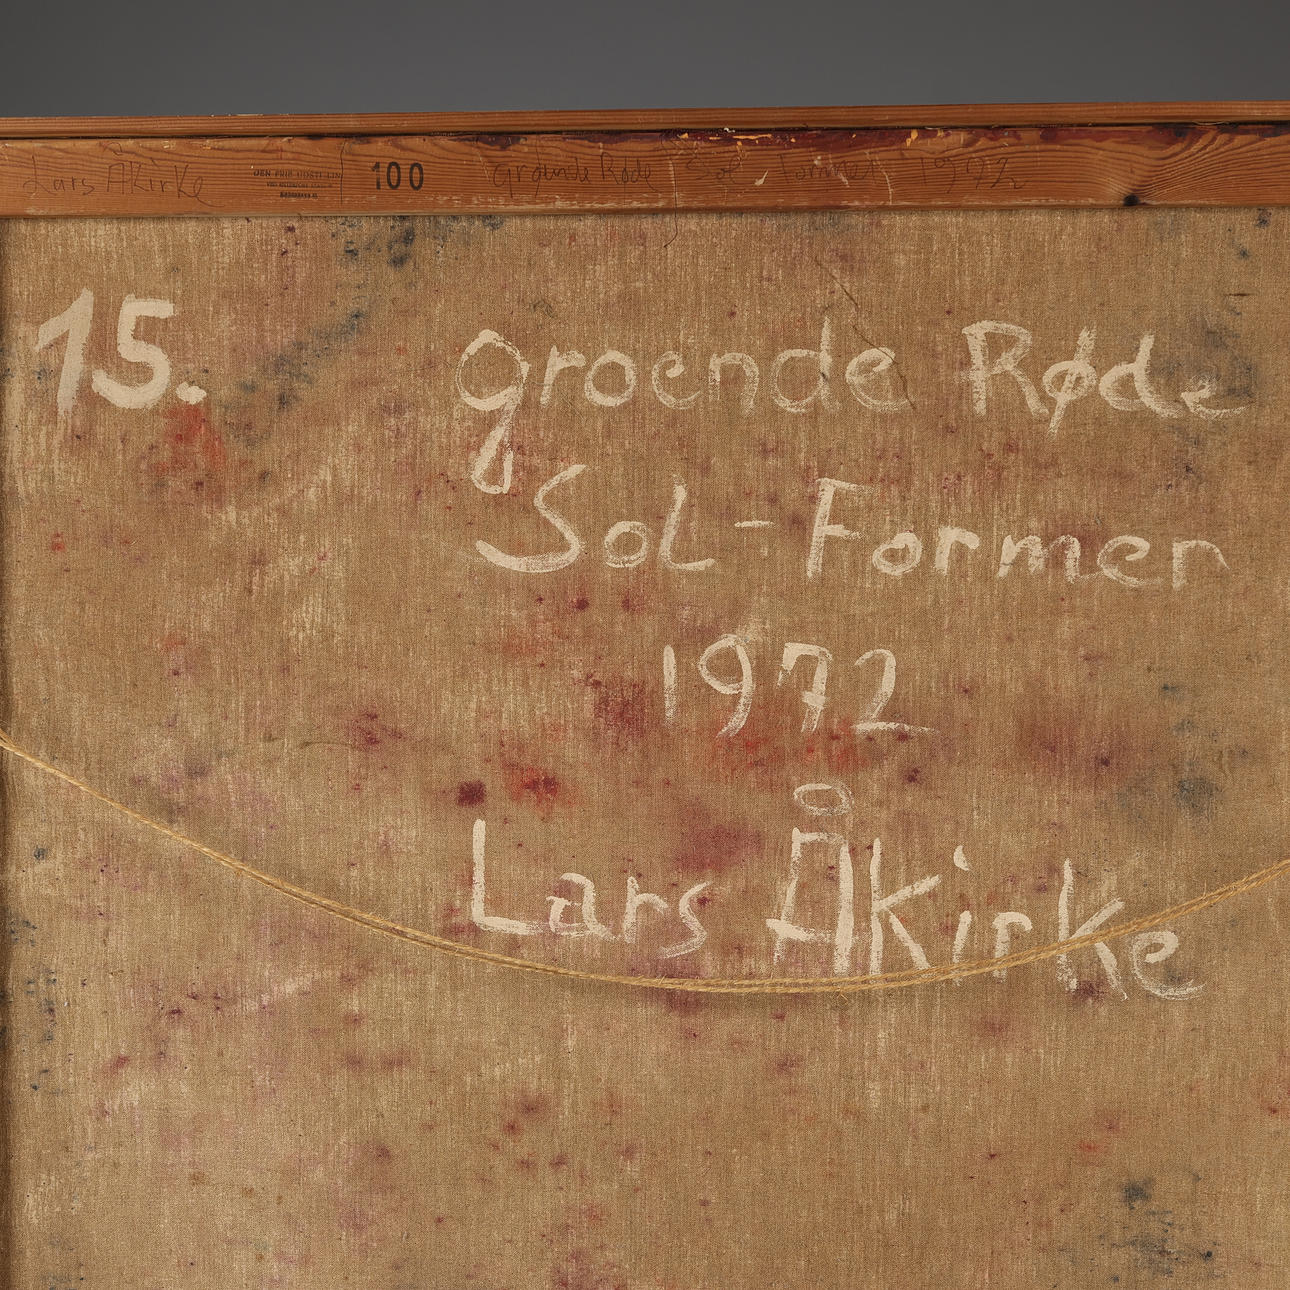 Lars Åkirke DEN FRIE UDSTILLING 100 groende Røde Sol-Former 1972
15. groende Røde
Sol-Former
1972
Lars Åkirke